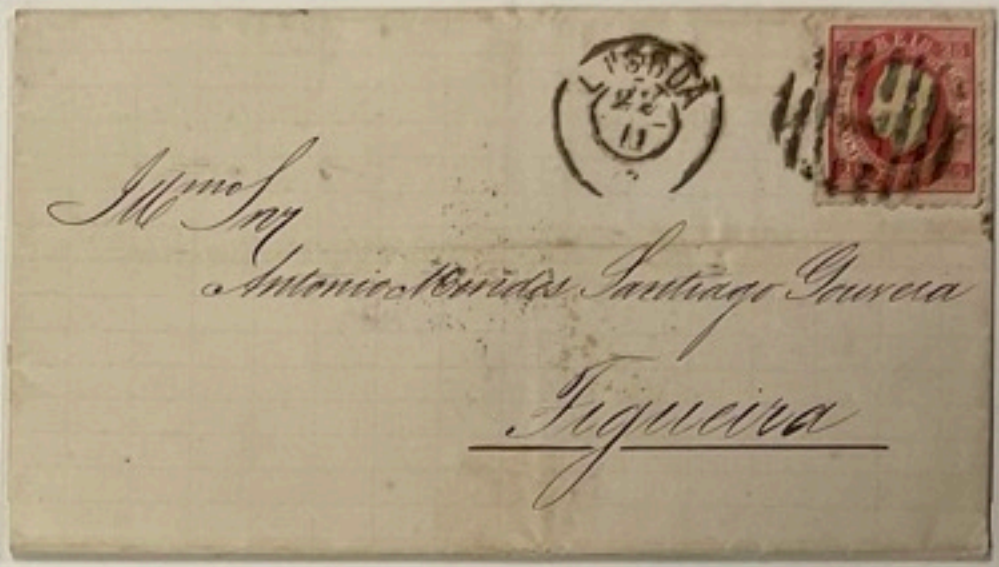 LISBOA
22
11
Illmo Snr
Antonio Mendes Santiago Gouveia
Figueira